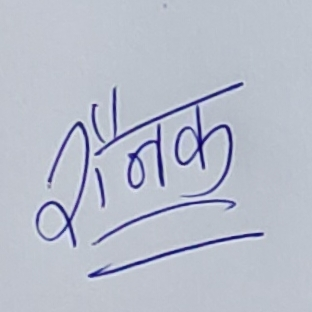 रौनक